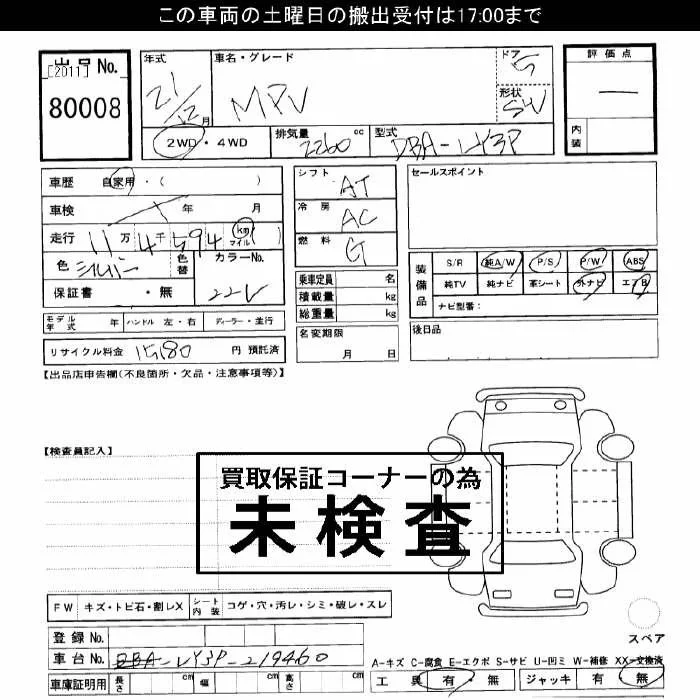 この車両の土曜日の搬出受付は17:00まで
出品No.
[2011]
80008
年式
21/12月
車名・グレード
MPV
ドア
5
形状
SW
評価点
―
内装
2WD・4WD
排気量
2260 cc
型式
DBA-LY3P
車歴 自家用・( )
車検 年 月
走行 11万4千594 km マイル
色 シルバー
色替
カラーNo.
22V
保証書 ・無
モデル年式 年
ハンドル 左・右
ディーラー・並行
リサイクル料金 15180 円 預託済
シフト
AT
冷房
AC
燃料
G
乗車定員 名
積載量 kg
総重量 kg
名変期限
月 日
セールスポイント
装備品
S/R 純A/W P/S P/W ABS
純TV 純ナビ 革シート 外ナビ エアB
ナビ型番：
後日品
【出品店申告欄(不良箇所・欠品・注意事項等)】
【検査員記入】
買取保証コーナーの為
未検査
FW キズ・トビ石・割レX
シート内装 コゲ・穴・汚レ・シミ・破レ・スレ
スペア
登録No.
車台No. DBA-LY3P-219460
車庫証明用 長さ cm 幅 cm 高さ cm
A-キズ C-腐食 E-エクボ S-サビ U-凹ミ W-補修 XX-交換済
工具 有・無 ジャッキ 有 無